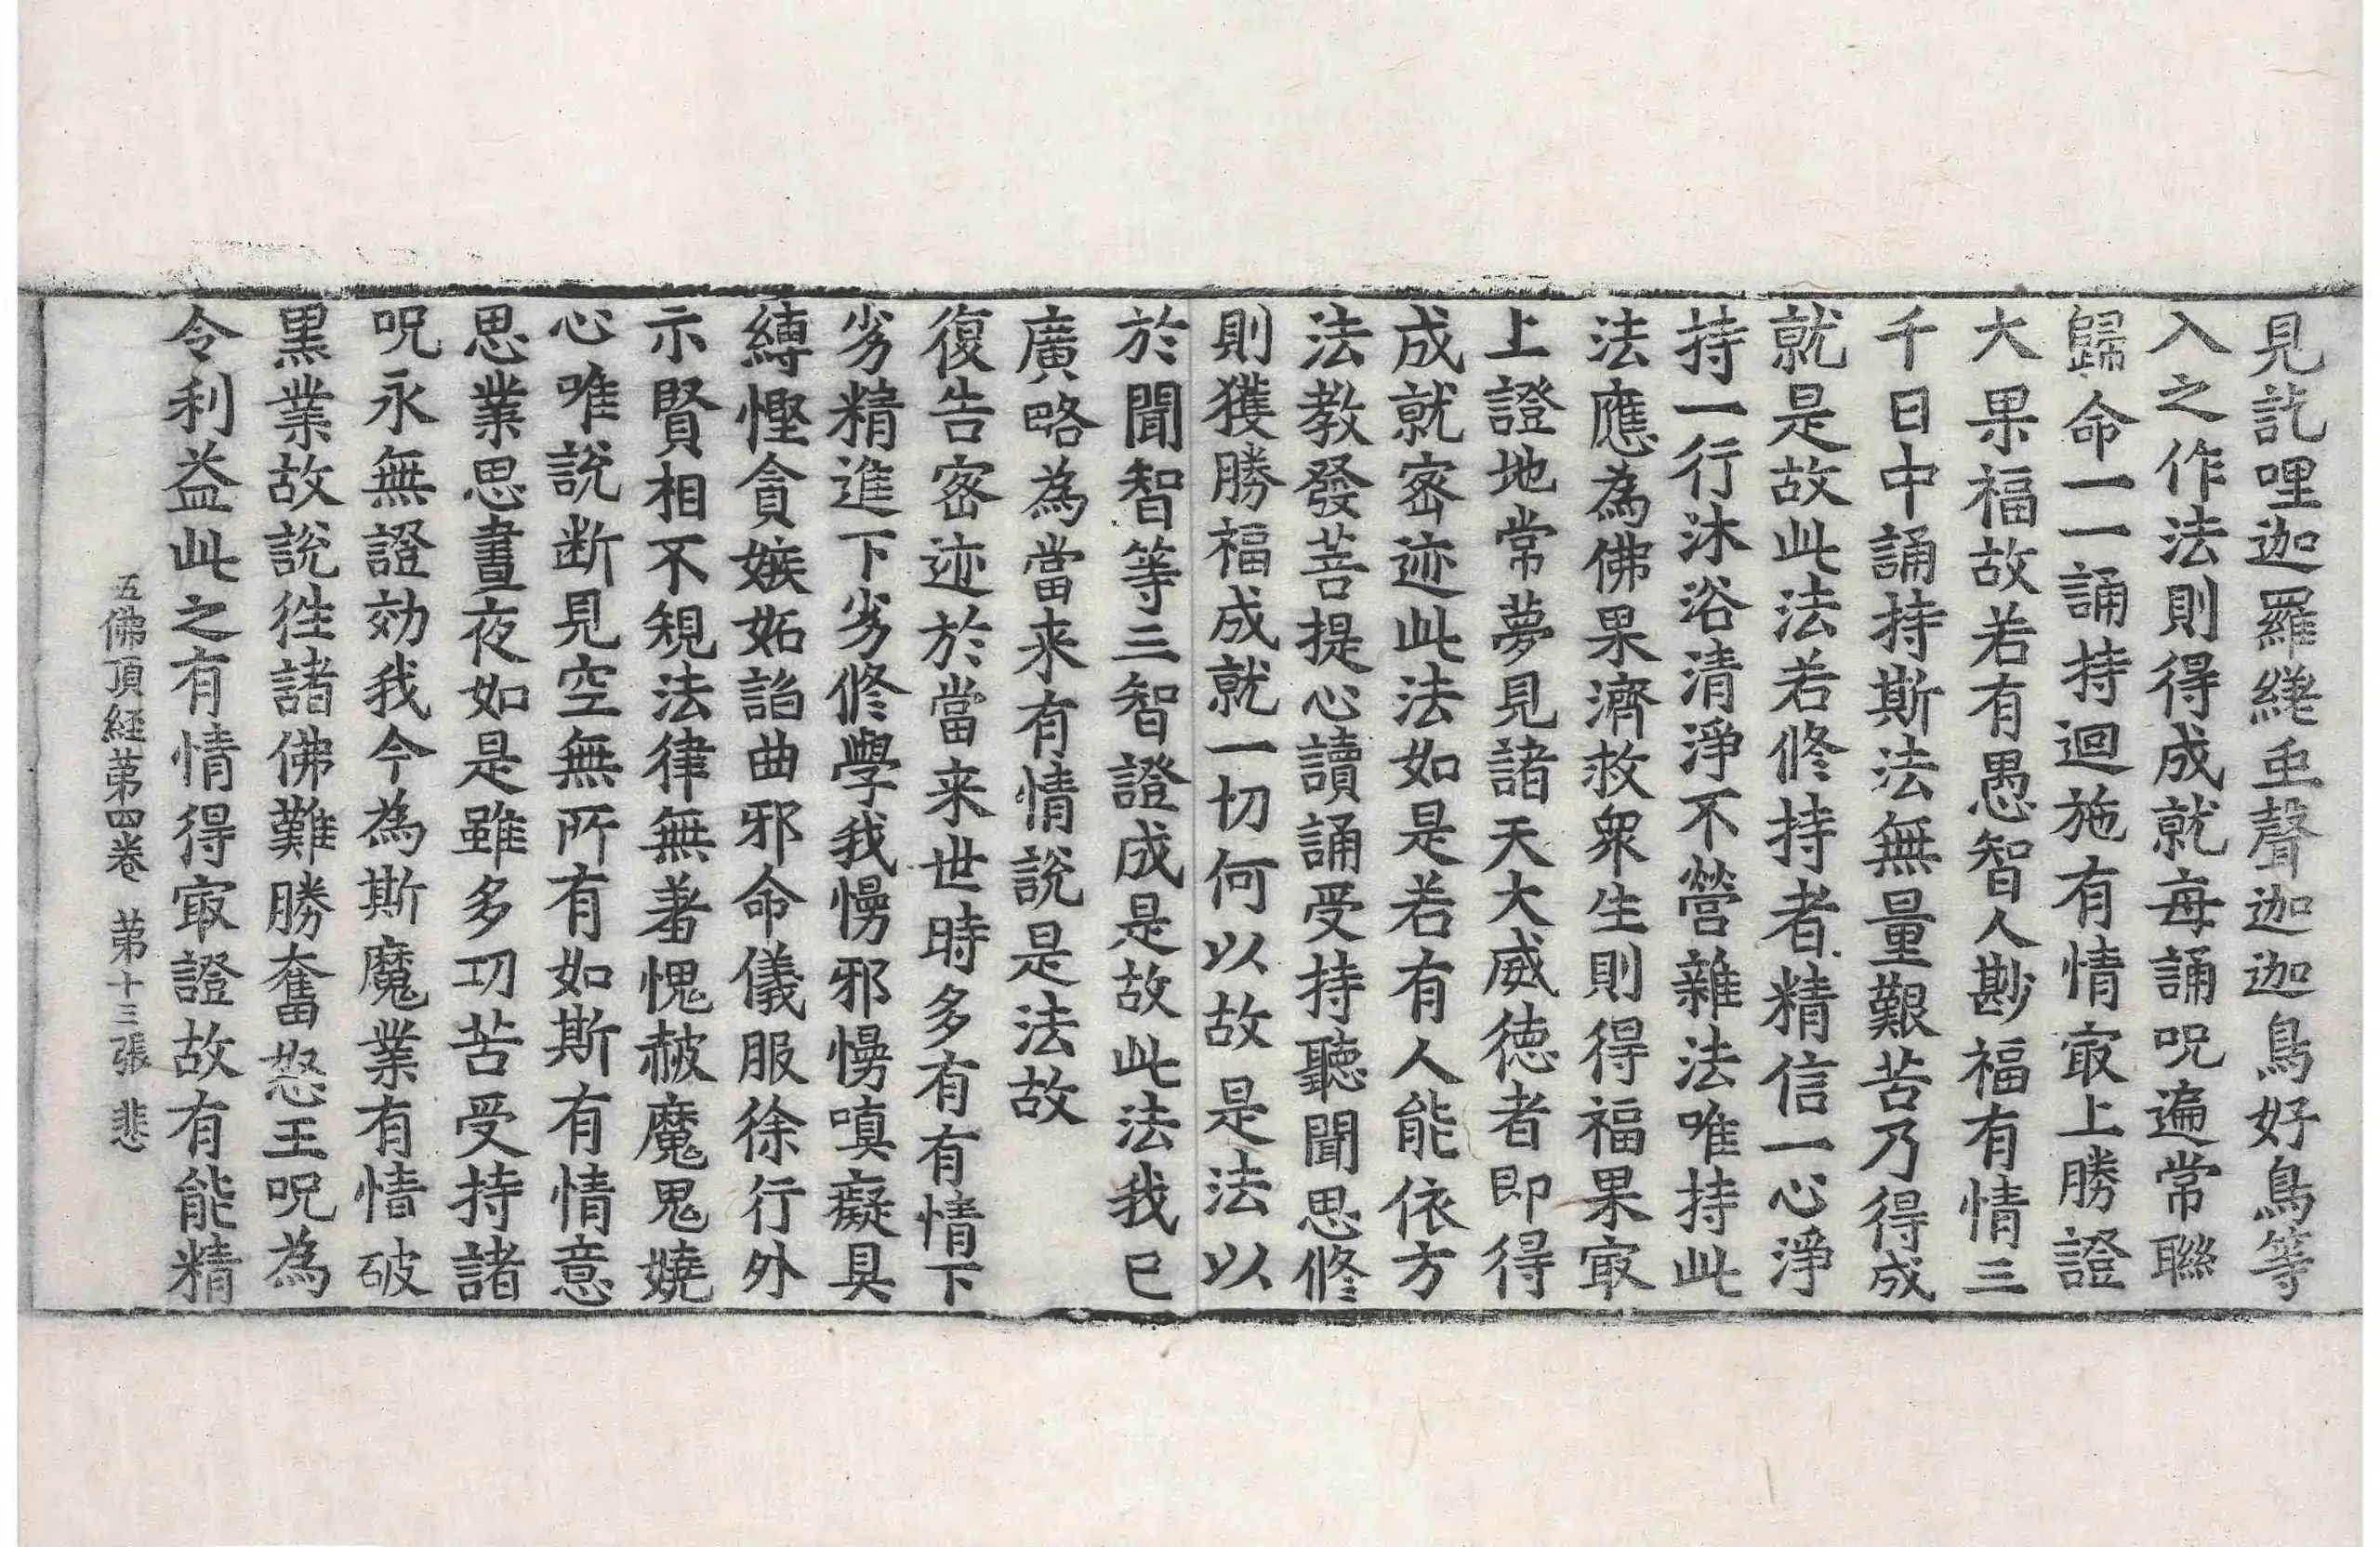 見訖哩迦羅緂𠁅聲迦迦鳥好鳥等
入之作法則得成就每誦呪遍常聮
歸命一一誦持迴施有情㝡上勝證
大果福故若有愚智人尠福有情三
千日中誦持斯法無量艱苦乃得成
就是故此法若修持者精信一心淨
持一行沐浴清淨不營雜法唯持此
法應為佛果濟救衆生則得福果㝡
上證地常夢見諸天大威德者即得
成就密迹此法如是若有人能依方
法教發菩提心讀誦受持聽聞思修
則獲勝福成就一切何以故是法以
於聞智等三智證成是故此法我已
廣略為當来有情說是法故
復告密迹於當来世時多有有情下
劣精進下劣修學我慢邪慢嗔癡具
縛慳貪嫉妬諂曲邪命儀服徐行外
示賢相不䂓法律無著愧赧魔鬼嬈
心唯說断見空無所有如斯有情意
思業思晝夜如是雖多功苦受持諸
呪永無證効我今為斯魔業有情破
黒業故說徃諸佛難勝奮怒王呪為
令利益此之有情得㝡證故有能精
五佛頂経第四卷 第十三張 悲